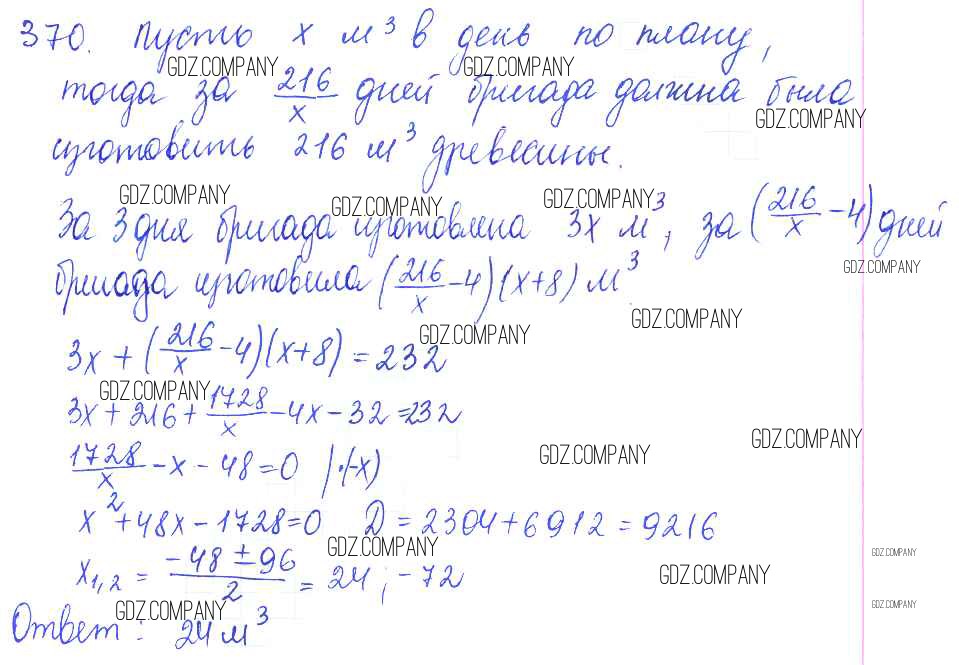 370. Пусть x м³ в день по плану,
GDZ.COMPANY GDZ.COMPANY
тогда за 216/x дней бригада должна была
GDZ.COMPANY
изготовить 216 м³ древесины.
GDZ.COMPANY GDZ.COMPANY GDZ.COMPANY
За 3 дня бригада изготовлена 3x м³, за (216/x - 4) дней
GDZ.COMPANY
бригада изготовила (216/x - 4)(x+8) м³
GDZ.COMPANY GDZ.COMPANY
3x + (216/x - 4)(x+8) = 232
GDZ.COMPANY
3x + 216 + 1728/x - 4x - 32 = 232
GDZ.COMPANY GDZ.COMPANY
1728/x - x - 48 = 0 |·(-x)
x² + 48x - 1728 = 0 D = 2304 + 6912 = 9216
GDZ.COMPANY GDZ.COMPANY
x1,2 = (-48 ± 96)/2 = 24; -72
GDZ.COMPANY
GDZ.COMPANY GDZ.COMPANY
Ответ: 24 м³